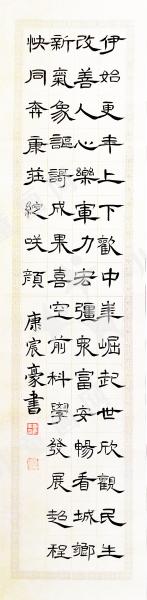 伊始更年上下歡中華崛起世欣觀民生
改善人心樂軍力宏彊衆富安暢看城鄉
新氣象謳謌成果喜空前科學發展超程
快同奔康莊綻咲顏
康宸豪書